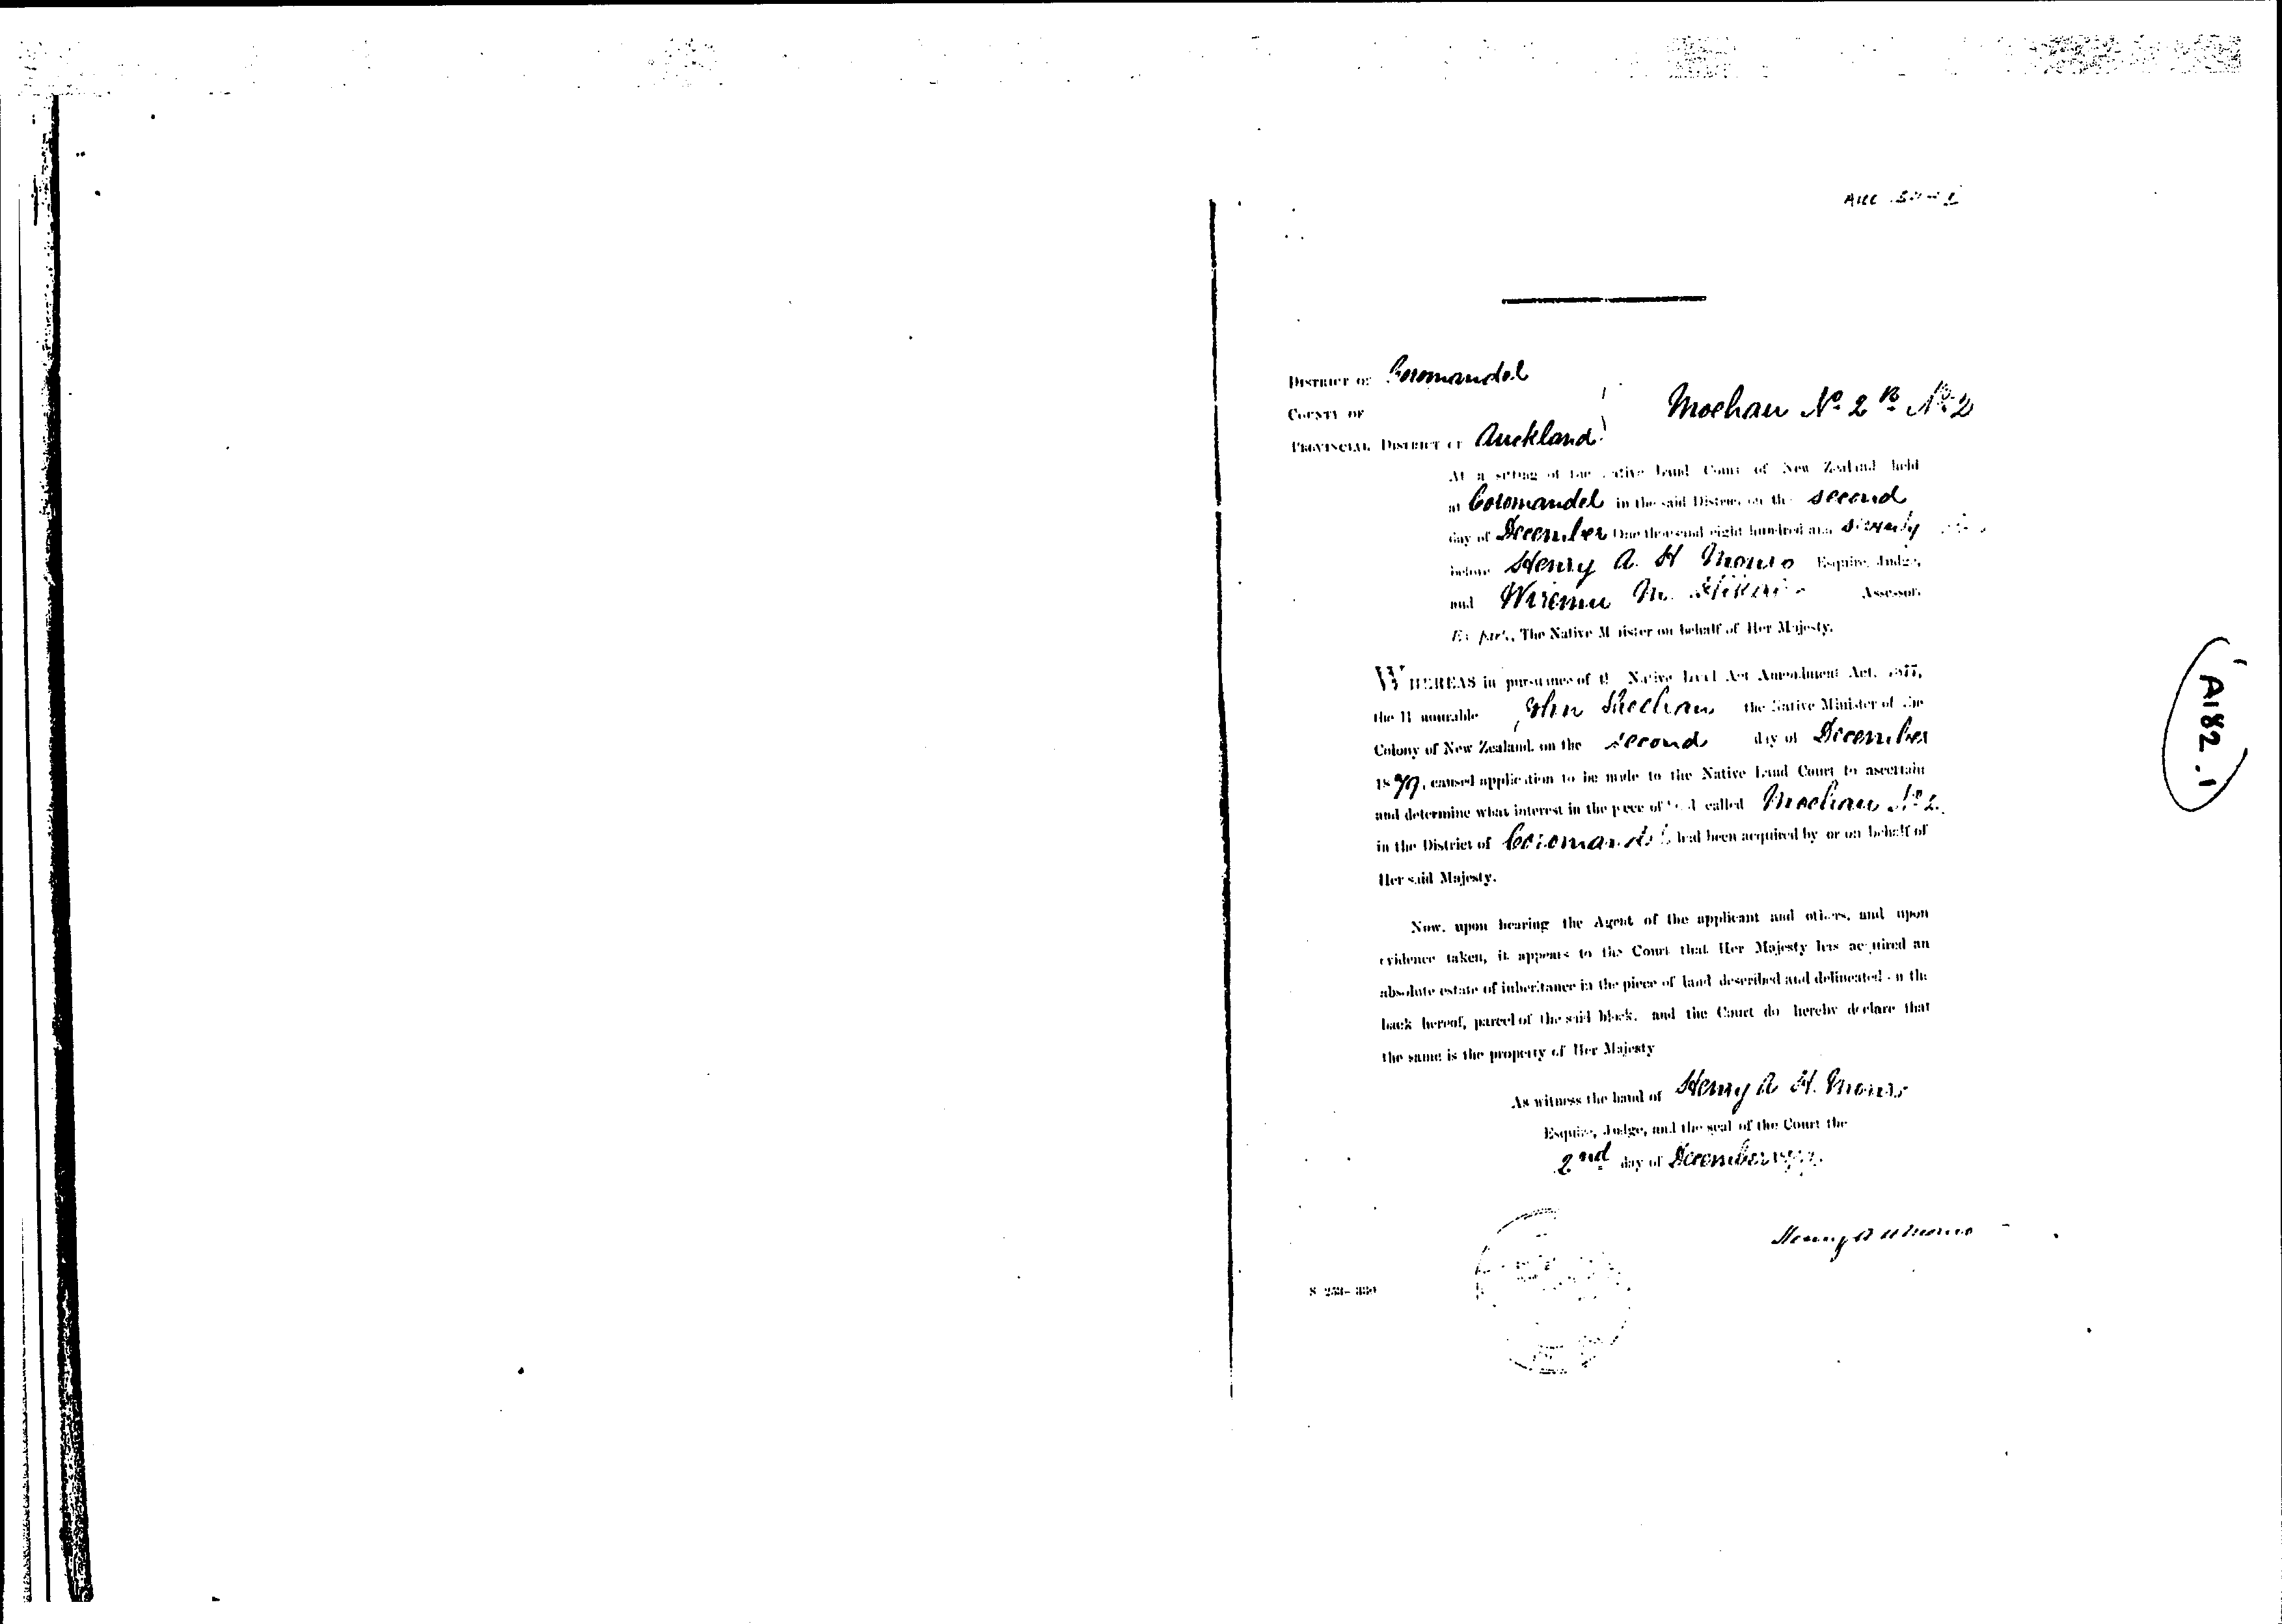 DISTRICT OF Coromandel
COUNTY OF
PROVINCIAL DISTRICT OF Auckland
Moehau No 2B No 2
At a sitting of the Native Land Court of New Zealand held
at Coromandel in the said District on the second
day of December One thousand eight hundred and seventy
before Henry A. H Monro Esquire, Judge,
and Wiremu Assessor.
Ex parte, The Native Minister on behalf of Her Majesty.
WHEREAS in pursuance of the Native Land Act Amendment Act, 1877,
the Honourable John Sheehan the Native Minister of the
Colony of New Zealand, on the second day of December
1879, caused application to be made to the Native Land Court to ascertain
and determine what interest in the piece of land called Moehau No 2
in the District of Coromandel had been acquired by or on behalf of
Her said Majesty.
Now, upon hearing the Agent of the applicant and others, and upon
evidence taken, it appears to the Court that Her Majesty has acquired an
absolute estate of inheritance in the piece of land described and delineated on the
back hereof, parcel of the said block, and the Court do hereby declare that
the same is the property of Her Majesty
As witness the hand of Henry A H. Monro
Esquire, Judge, and the seal of the Court the
2nd day of December
Henry A H Monro
A182.1